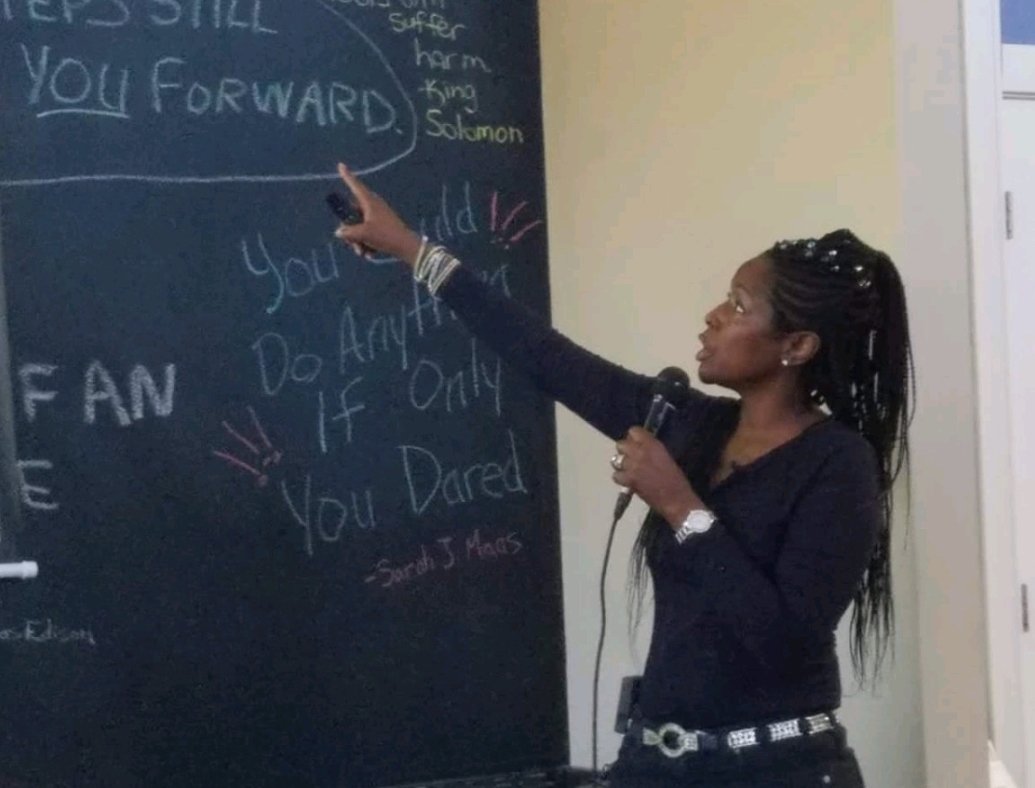 STEPS STILL
YOU FORWARD.
suffer
harm
-King
Solomon
You Could !!
Do Anything
If Only
!! You Dared
-Sarah J Maas
FAN
E
Edison